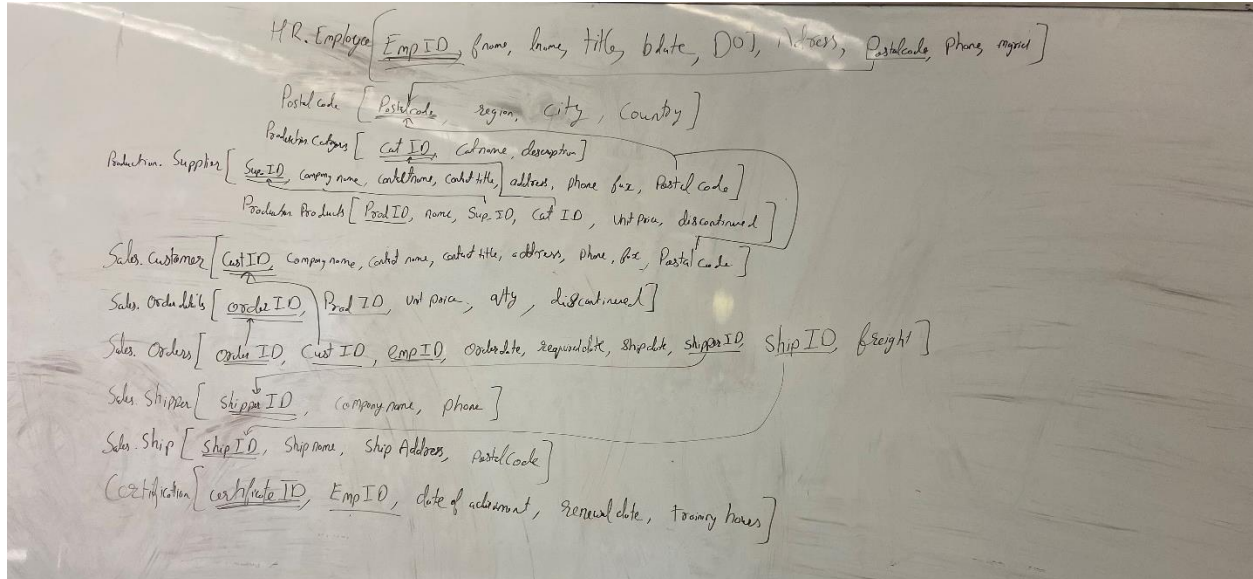 HR.Employee [EmpID, fname, lname, title, bdate, DOJ, Address, Postalcode, phone, mgrid]
Postal code [Postalcode, region, city, country]
Production Category [Cat ID, Catname, description]
Production. Supplier [Sup.ID, Company name, contactname, contact title, address, phone fax, Postal code]
Production Products [Prod ID, name, Sup.ID, Cat ID, unit price, discontinued]
Sales. Customer [Cust ID, Company name, contact name, contact title, address, phone, fax, Postal code]
Sales. Orderdetails [order ID, Prod ID, unit price, qty, discontinued]
Sales. Orders [order ID, Cust ID, empID, orderdate, requireddate, shipdate, shipperID, Ship ID, freight]
Sales. Shipper [Shipper ID, company name, phone]
Sales. Ship [Ship ID, Shipname, Ship Address, PostalCode]
Certification [certificate ID, EmpID, date of, renewal date, training hours]